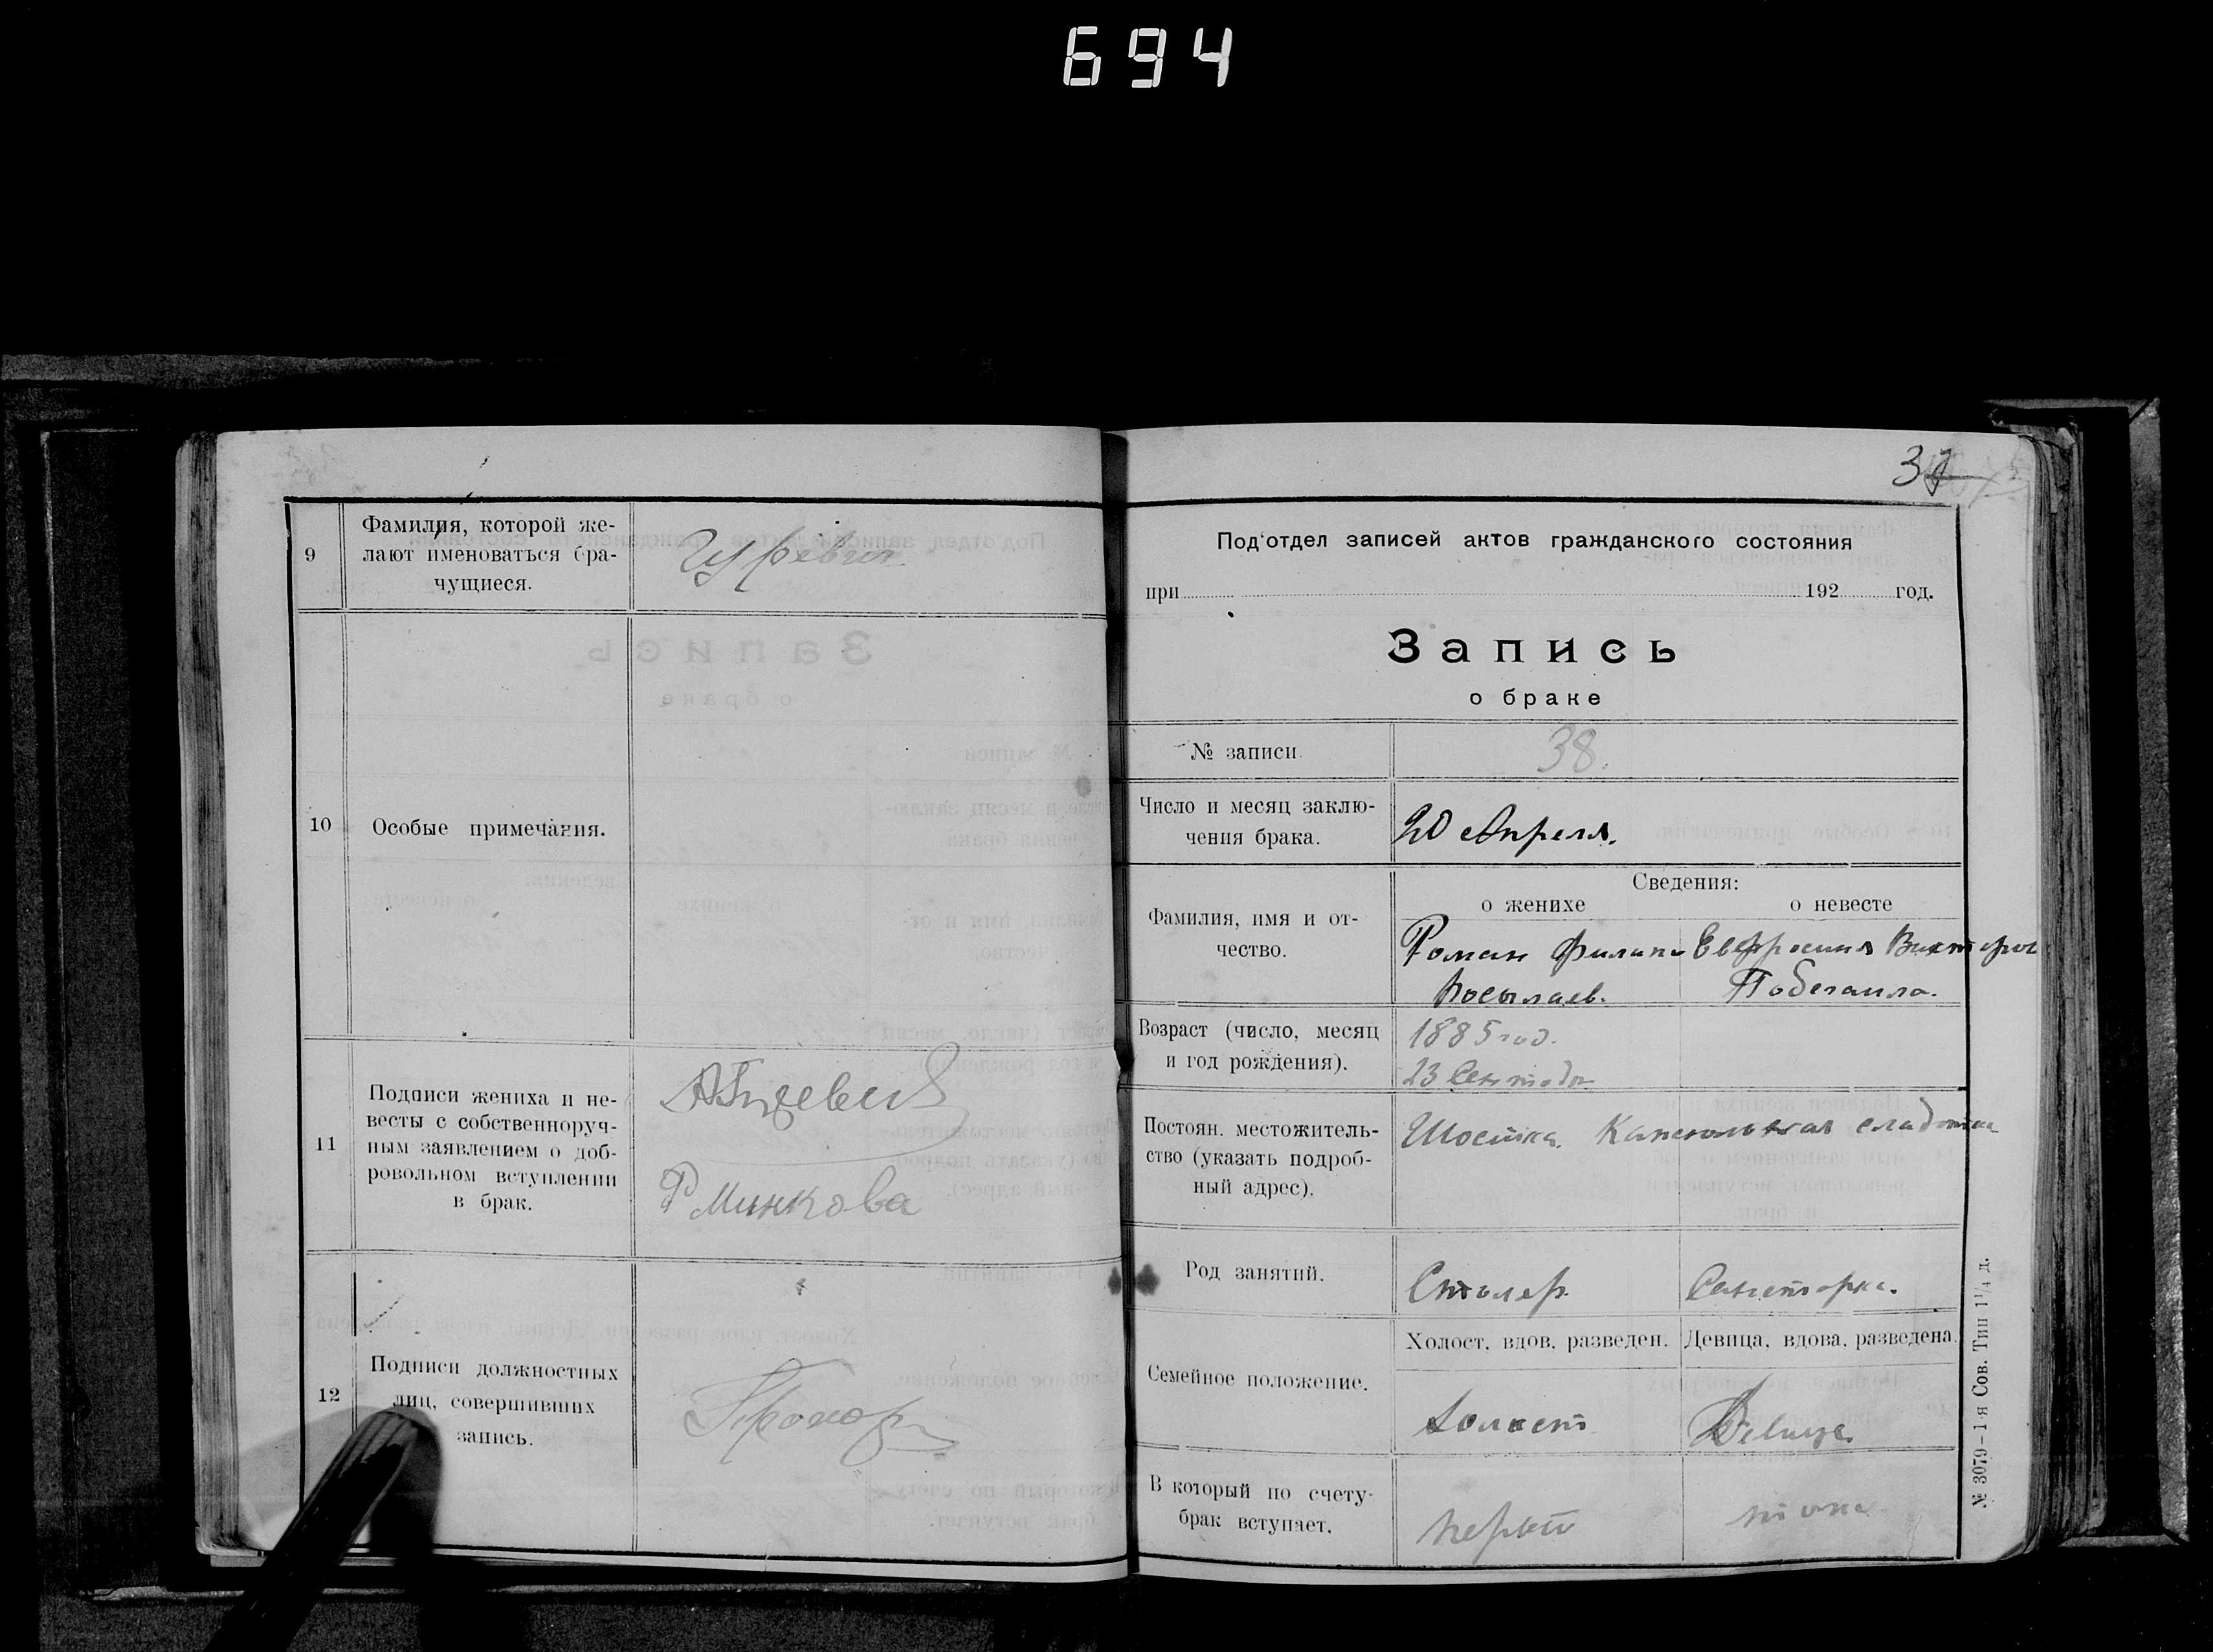 694
9
Фамилия, которой же-
лают именоваться бра-
чущиеся.
Гуревич
10
Особые примечания.
11
Подписи жениха и не-
весты с собственноруч-
ным заявлением о доб-
ровольном вступлении
в брак.
АГуревич
Р Минкова
12
Подписи должностных
лиц, совершивших
запись.
37
Под'отдел записей актов гражданского состояния
при 192 год.
Запись
о браке
№ записи
38.
Число и месяц заклю-
чения брака.
20 Апреля.
Сведения:
о женихе
о невесте
Фамилия, имя и от-
чество.
Роман Филип
Евфросиния Виктор
Побегайло.
Возраст (число, месяц
и год рождения).
1885 год.
23
Постоян. местожитель-
ство (указать подроб-
ный адрес).
Шостка.
Род занятий.
Столяр
Санитарка.
Семейное положение.
Холост, вдов, разведен.
Девица, вдова, разведена.
Холост
Девица
В который по счету
брак вступает.
первый
тоже
№ 3079–1-я Сов. Тип 1¼ д.